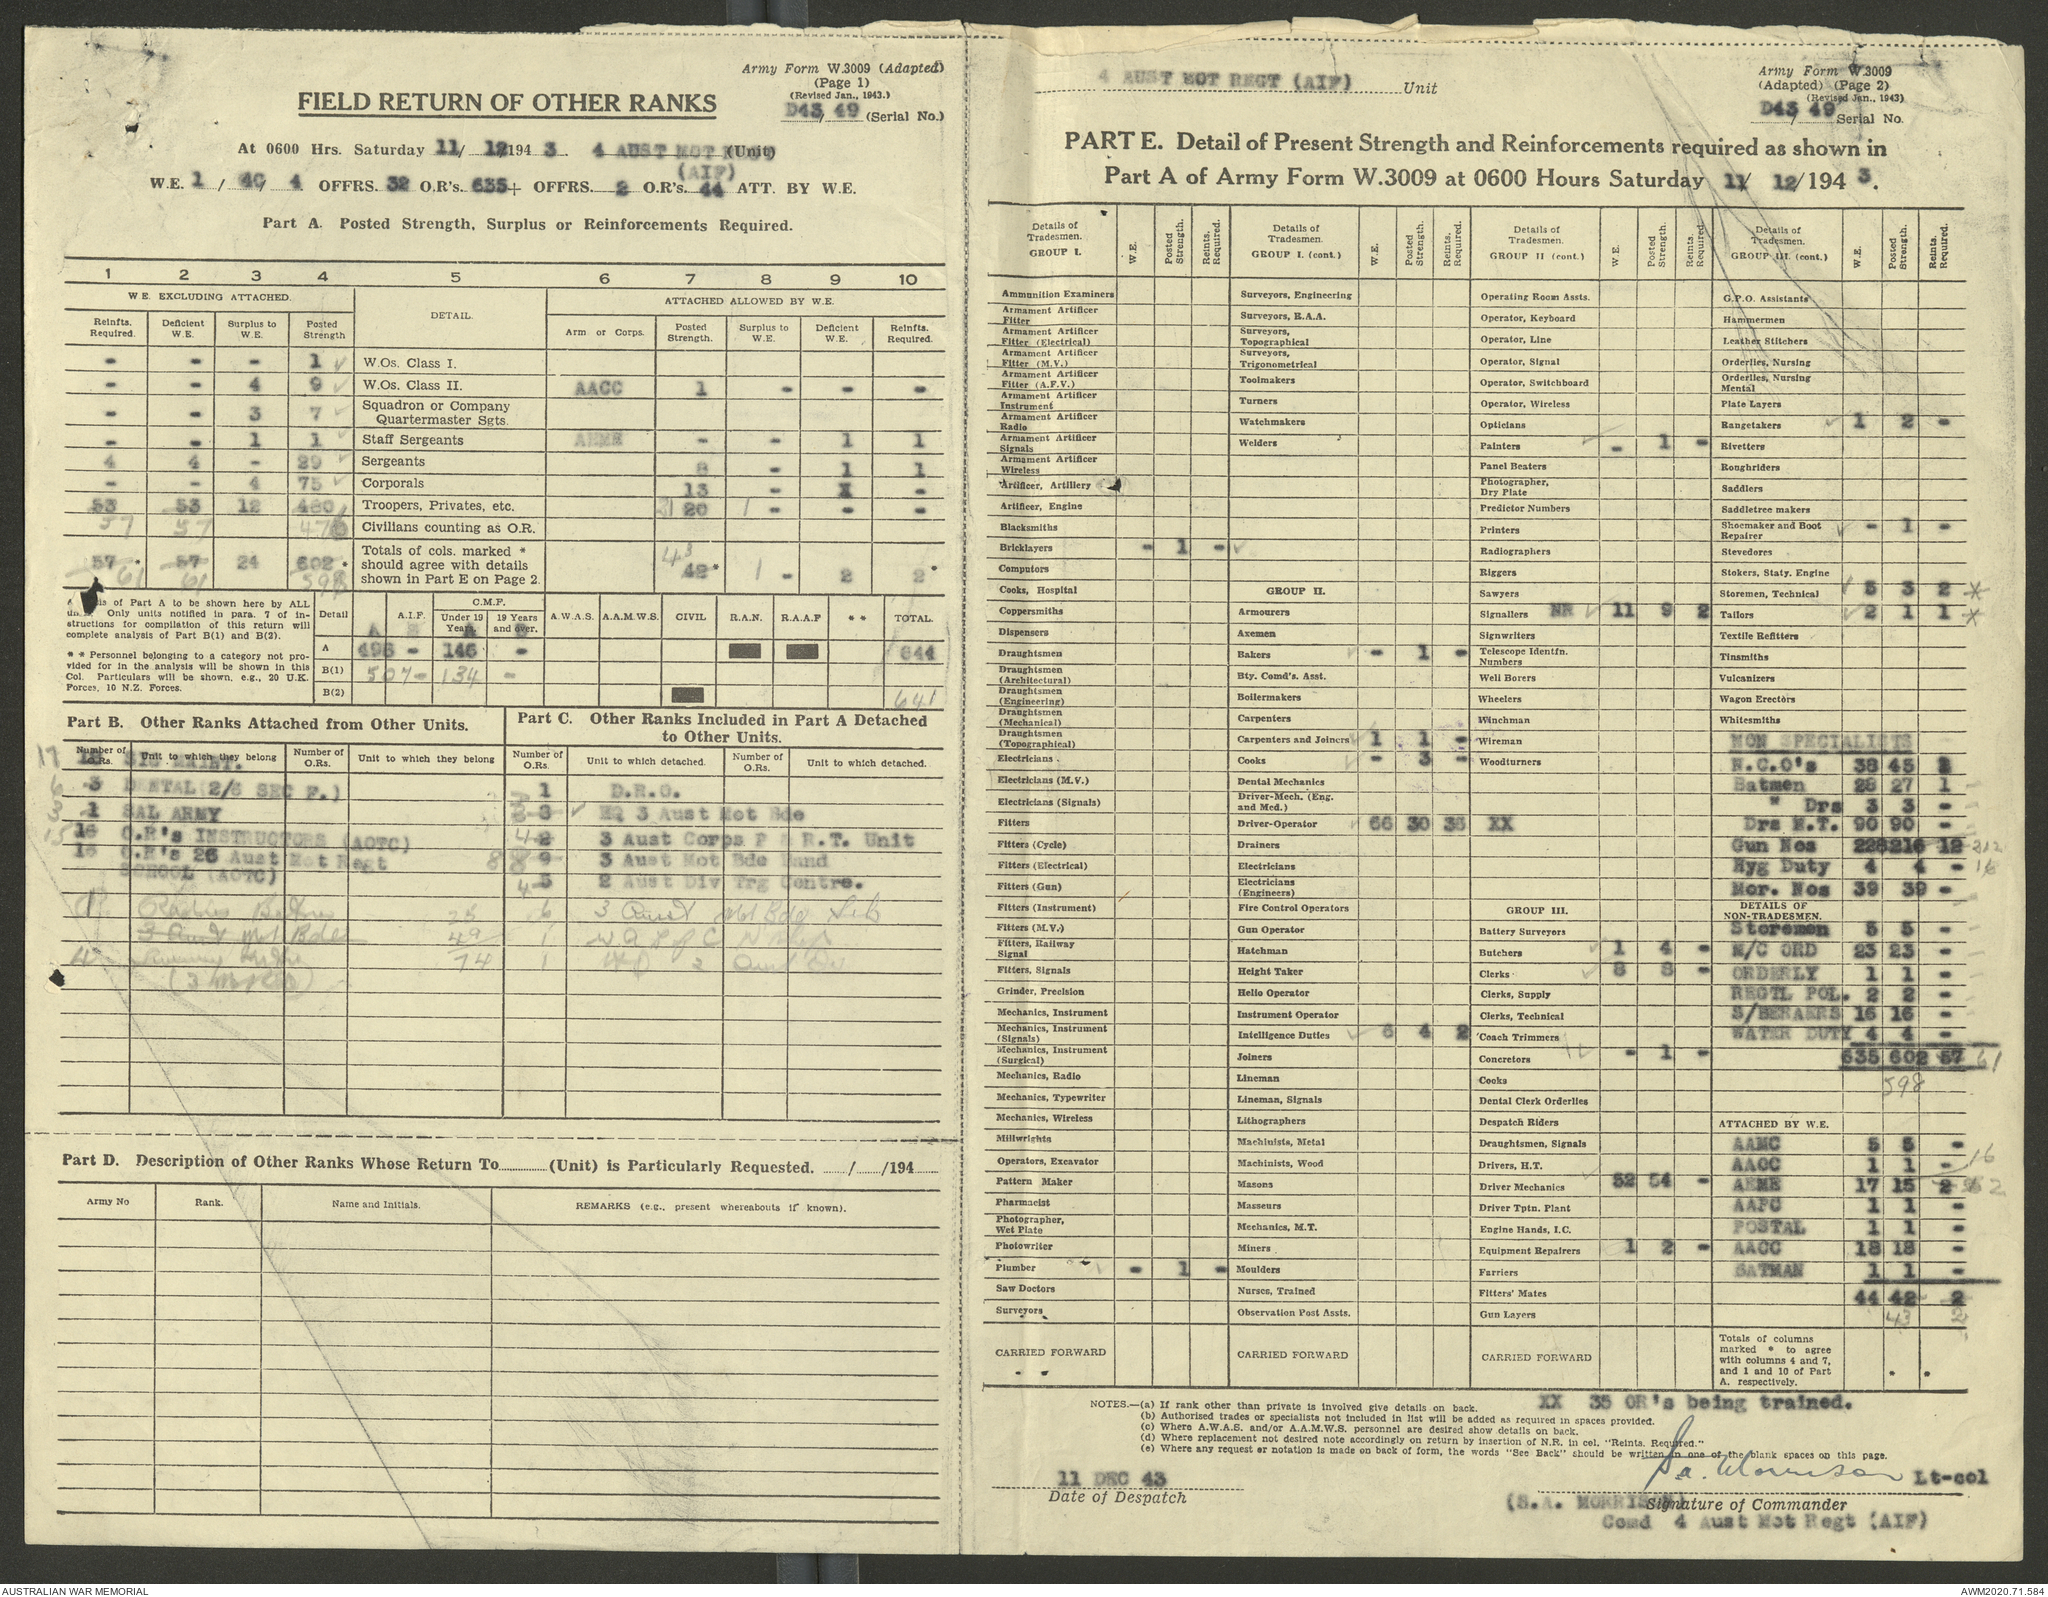 Army Form W.3009 (Adapted)
(Page 1)
(Revised Jan., 1943.)
FIELD RETURN OF OTHER RANKS
D43/ 49 (Serial No.)
At 0600 Hrs. Saturday 11/ 12/194 3. 4 AUST MOT (Unit)
(AIF)
W.E. 1 / 40/ 4 OFFRS. 32 O.R's. 635+ OFFRS. 2 O.R's. 44 ATT. BY W.E.
Part A. Posted Strength, Surplus or Reinforcements Required.
1 2 3 4 5 6 7 8 9 10
W.E. EXCLUDING ATTACHED. DETAIL. ATTACHED ALLOWED BY W.E.
Reinfts. Required. Deficient W.E. Surplus to W.E. Posted Strength Arm or Corps. Posted Strength. Surplus to W.E. Deficient W.E. Reinfts. Required.
- - - 1 W.Os. Class I.
- - 4 9 W.Os. Class II. AACC 1 - - -
- - 3 7 Squadron or Company Quartermaster Sgts.
- - 1 1 Staff Sergeants AEME - - 1 1
4 4 - 29 Sergeants 8 - 1 1
- - 4 75 Corporals 13 - -
53 53 12 480 Troopers, Privates, etc. 21 20 1 - - -
57 57 476 Civilians counting as O.R.
57 * 57 24 602 * Totals of cols. marked * should agree with details shown in Part E on Page 2. 43 42 * 1 - 2 2 *
61 61 598
of Part A to be shown here by ALL
Only units notified in para. 7 of in-
structions for compilation of this return will
complete analysis of Part B(1) and B(2).
* * Personnel belonging to a category not pro-
vided for in the analysis will be shown in this
Col. Particulars will be shown, e.g., 20 U.K.
Forces, 10 N.Z. Forces.
Detail A.I.F. C.M.F. Under 19 Years. 19 Years and over. A.W.A.S. A.A.M.W.S. CIVIL R.A.N. R.A.A.F * * TOTAL.
A 498 - 146 - 644
B(1) 507 - 134 -
B(2) 641
Part B. Other Ranks Attached from Other Units.
Number of O.Rs. Unit to which they belong Number of O.Rs. Unit to which they belong
17 SIG MAINT.
6 3 DENTAL (2/6 SEC F.)
3 1 SAL ARMY
15 16 O.R's INSTRUCTORS (AOTC)
16 O.R's 26 Aust Mot Regt
SCHOOL (AOTC)
25
3 Aust Mot Bde 49
4 74
Part C. Other Ranks Included in Part A Detached
to Other Units.
Number of O.Rs. Unit to which detached. Number of O.Rs. Unit to which detached.
1 D.R.O.
3 HQ 3 Aust Mot Bde
4 2 3 Aust Corps P & R.T. Unit
8 9 3 Aust Mot Bde Band
4 5 2 Aust Div Trg Centre.
6 3 Aust Mot Bde
1
1 HQ 2 Aust Div
Part D. Description of Other Ranks Whose Return To ............ (Unit) is Particularly Requested. ....../....../194......
Army No Rank. Name and Initials. REMARKS (e.g., present whereabouts if known).
4 AUST MOT REGT (AIF) Unit
Army Form W.3009
(Adapted) (Page 2)
(Revised Jan., 1943)
D43/ 49 Serial No.
PART E. Detail of Present Strength and Reinforcements required as shown in
Part A of Army Form W.3009 at 0600 Hours Saturday 11/ 12/194 3.
Details of Tradesmen. GROUP I. W.E. Posted Strength. Reints. Required.
Ammunition Examiners
Armament Artificer Fitter
Armament Artificer Fitter (Electrical)
Armament Artificer Fitter (M.V.)
Armament Artificer Fitter (A.F.V.)
Armament Artificer Instrument
Armament Artificer Radio
Armament Artificer Signals
Armament Artificer Wireless
Artificer, Artillery
Artificer, Engine
Blacksmiths
Bricklayers - 1 -
Computors
Cooks, Hospital
Coppersmiths
Dispensers
Draughtsmen
Draughtsmen (Architectural)
Draughtsmen (Engineering)
Draughtsmen (Mechanical)
Draughtsmen (Topographical)
Electricians
Electricians (M.V.)
Electricians (Signals)
Fitters
Fitters (Cycle)
Fitters (Electrical)
Fitters (Gun)
Fitters (Instrument)
Fitters (M.V.)
Fitters, Railway Signal
Fitters, Signals
Grinder, Precision
Mechanics, Instrument
Mechanics, Instrument (Signals)
Mechanics, Instrument (Surgical)
Mechanics, Radio
Mechanics, Typewriter
Mechanics, Wireless
Millwrights
Operators, Excavator
Pattern Maker
Pharmacist
Photographer, Wet Plate
Photowriter
Plumber - 1 -
Saw Doctors
Surveyors
CARRIED FORWARD
Details of Tradesmen. GROUP I. (cont.) W.E. Posted Strength. Reints. Required.
Surveyors, Engineering
Surveyors, R.A.A.
Surveyors, Topographical
Surveyors, Trigonometrical
Toolmakers
Turners
Watchmakers
Welders
GROUP II.
Armourers
Axemen
Bakers - 1 -
Bty. Comd's. Asst.
Boilermakers
Carpenters
Carpenters and Joiners 1 1 -
Cooks - 3 -
Dental Mechanics
Driver-Mech. (Eng. and Med.)
Driver-Operator 66 30 35 XX
Drainers
Electricians
Electricians (Engineers)
Fire Control Operators
Gun Operator
Hatchman
Height Taker
Helio Operator
Instrument Operator
Intelligence Duties 6 4 2
Joiners
Lineman
Lineman, Signals
Lithographers
Machinists, Metal
Machinists, Wood
Masons
Masseurs
Mechanics, M.T.
Miners
Moulders
Nurses, Trained
Observation Post Assts.
CARRIED FORWARD
Details of Tradesmen. GROUP II (cont.) W.E. Posted Strength. Reints. Required.
Operating Room Assts.
Operator, Keyboard
Operator, Line
Operator, Signal
Operator, Switchboard
Operator, Wireless
Opticians
Painters - 1 -
Panel Beaters
Photographer, Dry Plate
Predictor Numbers
Printers
Radiographers
Riggers
Sawyers
Signallers NR 11 9 2
Signwriters
Telescope Identfn. Numbers
Well Borers
Wheelers
Winchman
Wireman
Woodturners
GROUP III.
Battery Surveyors
Butchers 1 4 -
Clerks 8 8 -
Clerks, Supply
Clerks, Technical
Coach Trimmers
Concretors - 1 -
Cooks
Dental Clerk Orderlies
Despatch Riders
Draughtsmen, Signals
Drivers, H.T.
Driver Mechanics 52 54 -
Driver Tptn. Plant
Engine Hands, I.C.
Equipment Repairers 1 2 -
Farriers
Fitters' Mates
Gun Layers
CARRIED FORWARD
Details of Tradesmen. GROUP III. (cont.) W.E. Posted Strength. Reints. Required.
G.P.O. Assistants
Hammermen
Leather Stitchers
Orderlies, Nursing
Orderlies, Nursing Mental
Plate Layers
Rangetakers 1 2 -
Rivetters
Roughriders
Saddlers
Saddletree makers
Shoemaker and Boot Repairer - 1 -
Stevedores
Stokers, Staty. Engine
Storemen, Technical 5 3 2 *
Tailors 2 1 1 *
Textile Refitters
Tinsmiths
Vulcanizers
Wagon Erectors
Whitesmiths
NON SPECIALISTS
N.C.O's 38 45
Batmen 28 27 1
" Drs 3 3 -
Drs M.T. 90 90 -
Gun Nos 228 216 12 212
Hyg Duty 4 4 - 16
Mor. Nos 39 39 -
DETAILS OF NON-TRADESMEN.
Storemen 5 5 -
M/C ORD 23 23 -
ORDERLY 1 1 -
REGTL POL. 2 2 -
S/BERAERS 16 16 -
WATER DUTY 4 4 -
635 602 57 61
598
ATTACHED BY W.E.
AAMC 5 5 -
AAOC 1 1 - 16
AEME 17 15 2 2
AAPC 1 1 -
POSTAL 1 1 -
AACC 18 18 -
BATMAN 1 1 -
44 42 2
43 2
Totals of columns marked * to agree with columns 4 and 7, and 1 and 10 of Part A. respectively. * *
NOTES.—(a) If rank other than private is involved give details on back.
XX 35 OR's being trained.
(b) Authorised trades or specialists not included in list will be added as required in spaces provided.
(c) Where A.W.A.S. and/or A.A.M.W.S. personnel are desired show details on back.
(d) Where replacement not desired note accordingly on return by insertion of N.R. in col. "Reints. Required."
(e) Where any request or notation is made on back of form, the words "See Back" should be written in one of the blank spaces on this page.
11 DEC 43
Date of Despatch
S.A. Morrison Lt-col
(S.A. MORRISON)
Signature of Commander
Comd 4 Aust Mot Regt (AIF)
AUSTRALIAN WAR MEMORIAL
AWM2020.71.584